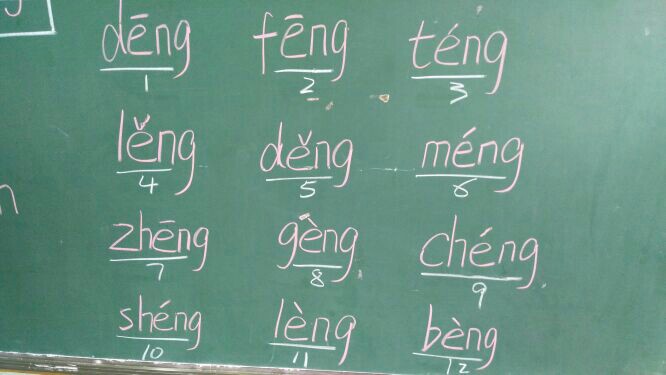 dēng fēng téng
1 2 3
lěng děng méng
4 5 6
zhēng gèng chéng
7 8 9
shéng lèng bèng
10 11 12